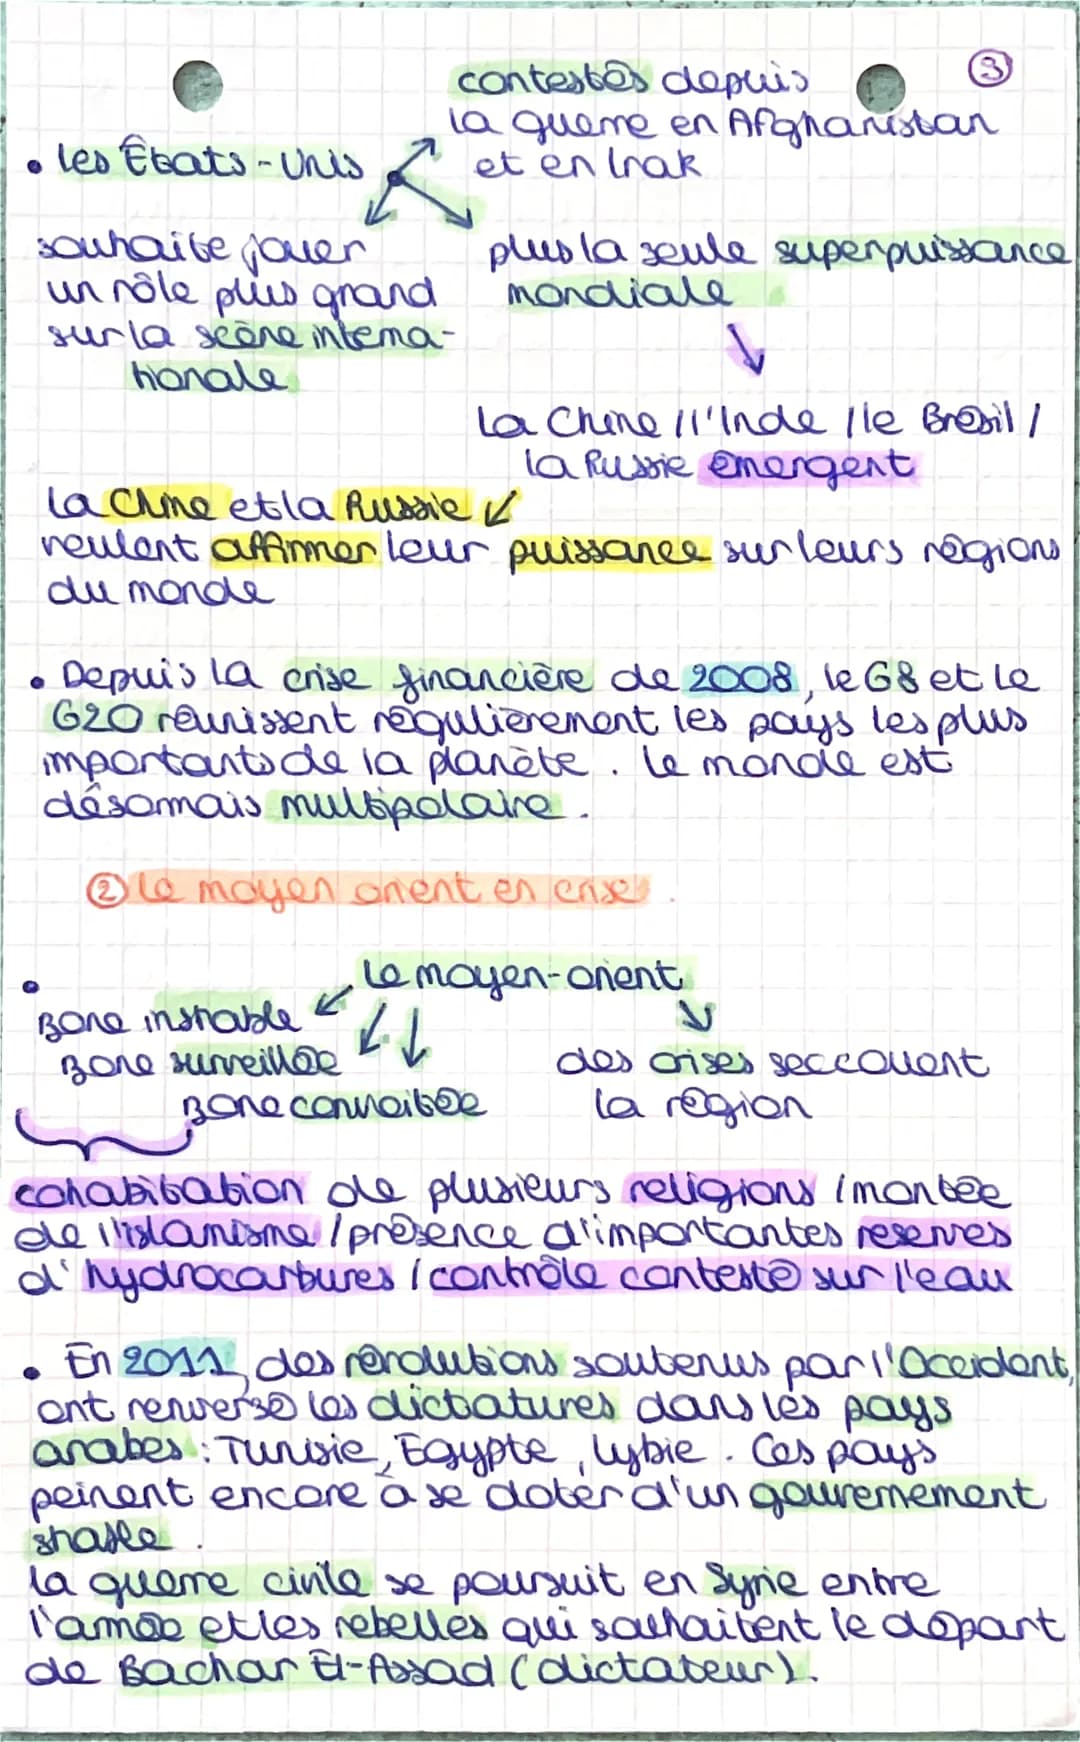 ③
contestés depuis
la guerre en Afghanistan
et en Irak
• les États-Unis
souhaite jouer
un rôle plus grand
sur la scène interna-
tionale
plus la seule superpuissance
mondiale
La Chine / l'Inde / le Brésil /
la Russie émergent
La Chine et la Russie
veulent affirmer leur puissance sur leurs régions
du monde
• Depuis la crise financière de 2008, le G8 et le
G20 réunissent régulièrement les pays les plus
importants de la planète. Le monde est
désormais multipolaire.
② Le moyen orient en crise.
• Le moyen-orient
zone instable
zone surveillée
zone convoitée
des crises seccouent
la région
cohabitation de plusieurs religions / montée
de l'islamisme / présence d'importantes reserves
d'hydrocarbures / contrôle contesté sur l'eau
• En 2011, des révolutions soutenus par l'Occident,
ont renversé les dictatures dans les pays
arabes : Tunisie, Egypte, Lybie. Ces pays
peinent encore à se doter d'un gouvernement
stable.
La guerre civile se poursuit en Syrie entre
l'armée et les rebelles qui souhaitent le départ
de Bachar El-Assad (dictateur).